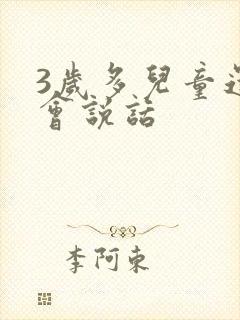 3歲多兒童還
會說話
李阿東